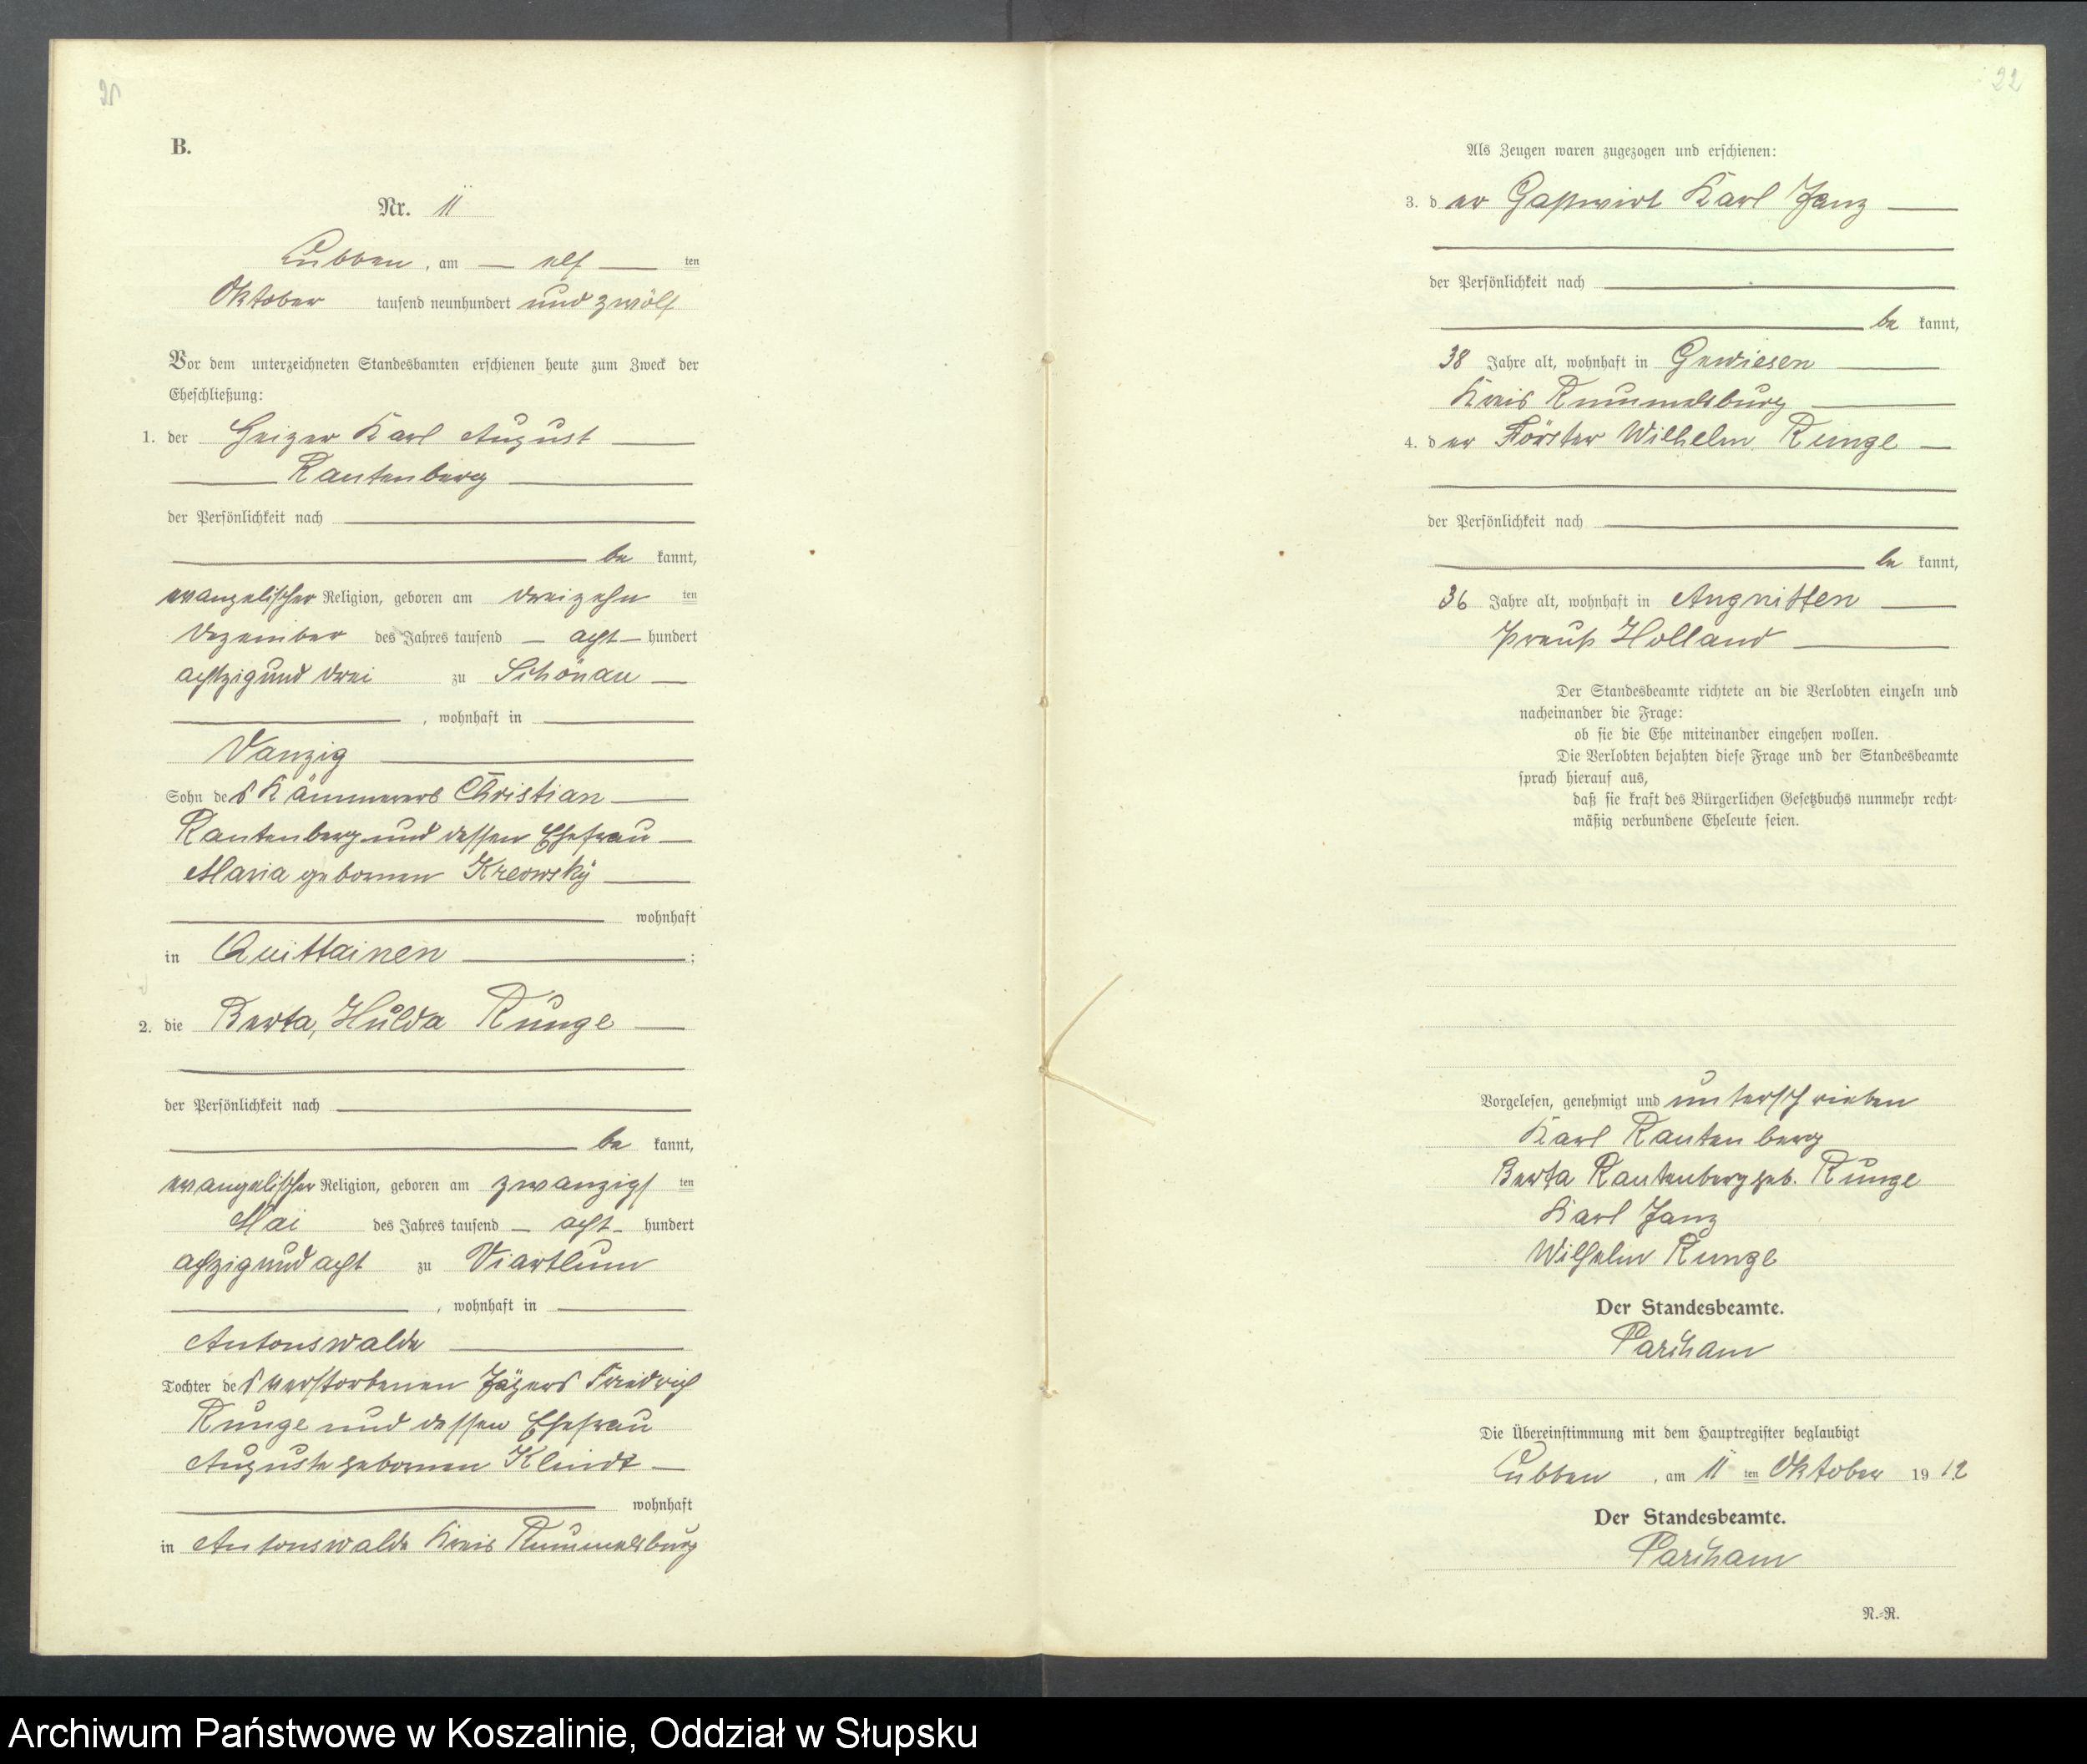 21
B.
Nr. 11
Lubben, am elf ten
Oktober tausend neunhundert und zwölf
Vor dem unterzeichneten Standesbamten erschienen heute zum Zweck der
Eheschließung:
1. der Heizer Karl August
Rautenberg
der Persönlichkeit nach
be kannt,
evangelischer Religion, geboren am dreizehn ten
Dezember des Jahres tausend acht hundert
achtzig und drei zu Schönau
, wohnhaft in
Danzig
Sohn des Kämmerers Christian
Rautenberg und dessen Ehefrau
Maria geborenen
wohnhaft
in Quittainen ;
2. die Berta, Hulda Runge
der Persönlichkeit nach
be kannt,
evangelischer Religion, geboren am zwanzigs ten
Mai des Jahres tausend acht hundert
achzig und acht zu Viartlum
, wohnhaft in
Antonswalde
Tochter des verstorbenen Jägers Friedrich
Runge und dessen Ehefrau
Auguste geborenen
wohnhaft
in Antonswalde Kreis Rummelsburg
22
Als Zeugen waren zugezogen und erschienen:
3. d er Gastwirt Karl Janz
der Persönlichkeit nach
be kannt,
38 Jahre alt, wohnhaft in Gewiesen
Kreis Rummelsburg
4. d er Förster Wilhelm Runge
der Persönlichkeit nach
be kannt,
36 Jahre alt, wohnhaft in Angnitten
Preuß Holland
Der Standesbeamte richtete an die Verlobten einzeln und
nacheinander die Frage:
ob sie die Ehe miteinander eingehen wollen.
Die Verlobten bejahten diese Frage und der Standesbeamte
sprach hierauf aus,
daß sie kraft des Bürgerlichen Gesetzbuchs nunmehr recht-
mäßig verbundene Eheleute seien.
Vorgelesen, genehmigt und unterschrieben
Karl Rautenberg
Berta Rautenberg geb. Runge
Karl Janz
Wilhelm Runge
Der Standesbeamte.
Die Übereinstimmung mit dem Hauptregister beglaubigt
Lubben, am 11 ten Oktober 19 12
Der Standesbeamte.
N.-R.
Archiwum Państwowe w Koszalinie, Oddział w Słupsku